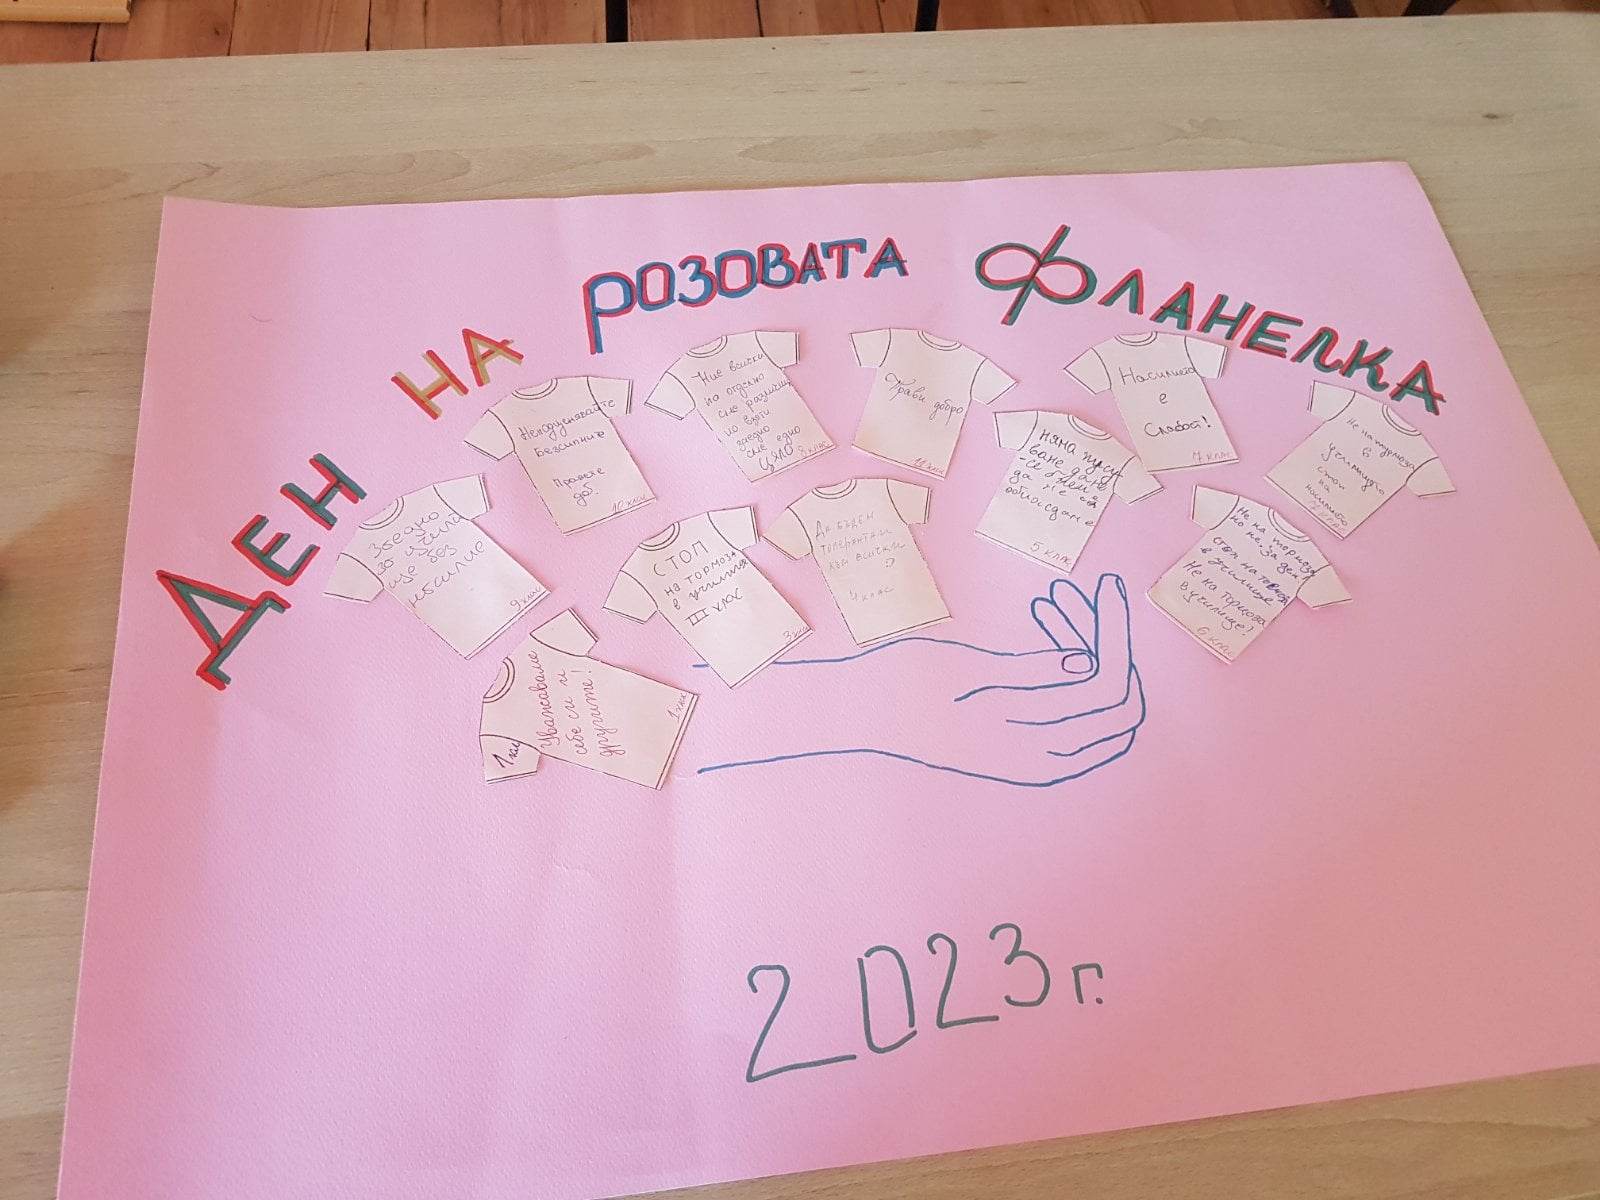 ДЕН НА РОЗОВАТА ФЛАНЕЛКА
Ние всички
по отделно
сме различни
но взети
заедно
сме едно
ЦЯЛО
8 клас
Прави добро
клас
Насилието
е
Слабост!
7 клас
Неподценявайте
Безсилните
Правете
доб.
10 клас
Не на тормоза
в
училището
стоп
на
насилието
клас
няма
да не се
5 клас
Заедно
за училище
без
насилие
9 клас
СТОП
на тормоза
в училище
III клас
3 клас
Да бъдем
толерантни
към всички
4 клас
Не на тормоза
стоп на тормоза
в училище
Не на тормоза
в училище!
6 клас
Уважаваме
себе си и
другите!
1 клас
1 кл
2023 г.